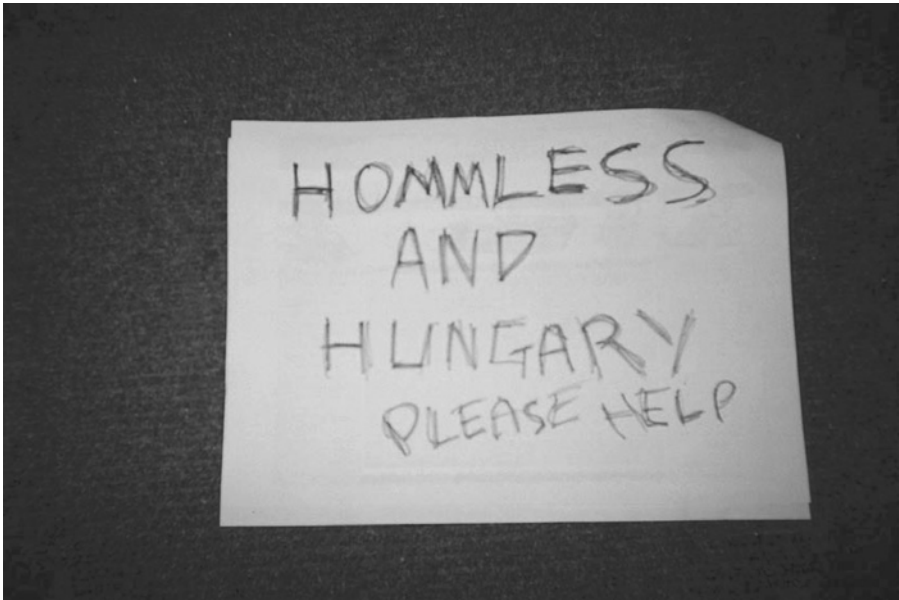 HOMMLESS
AND
HUNGARY
PLEASE HELP